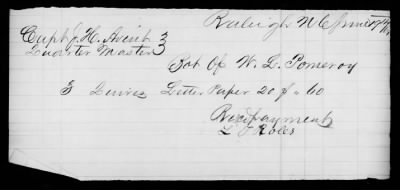 Raleigh N C June 17th
Capt J. H. Avent
Quarter Master
Bot Of W. L. Pomeroy
3 Quires Letter Paper 20 $ .60
Recd payment
L J Robes